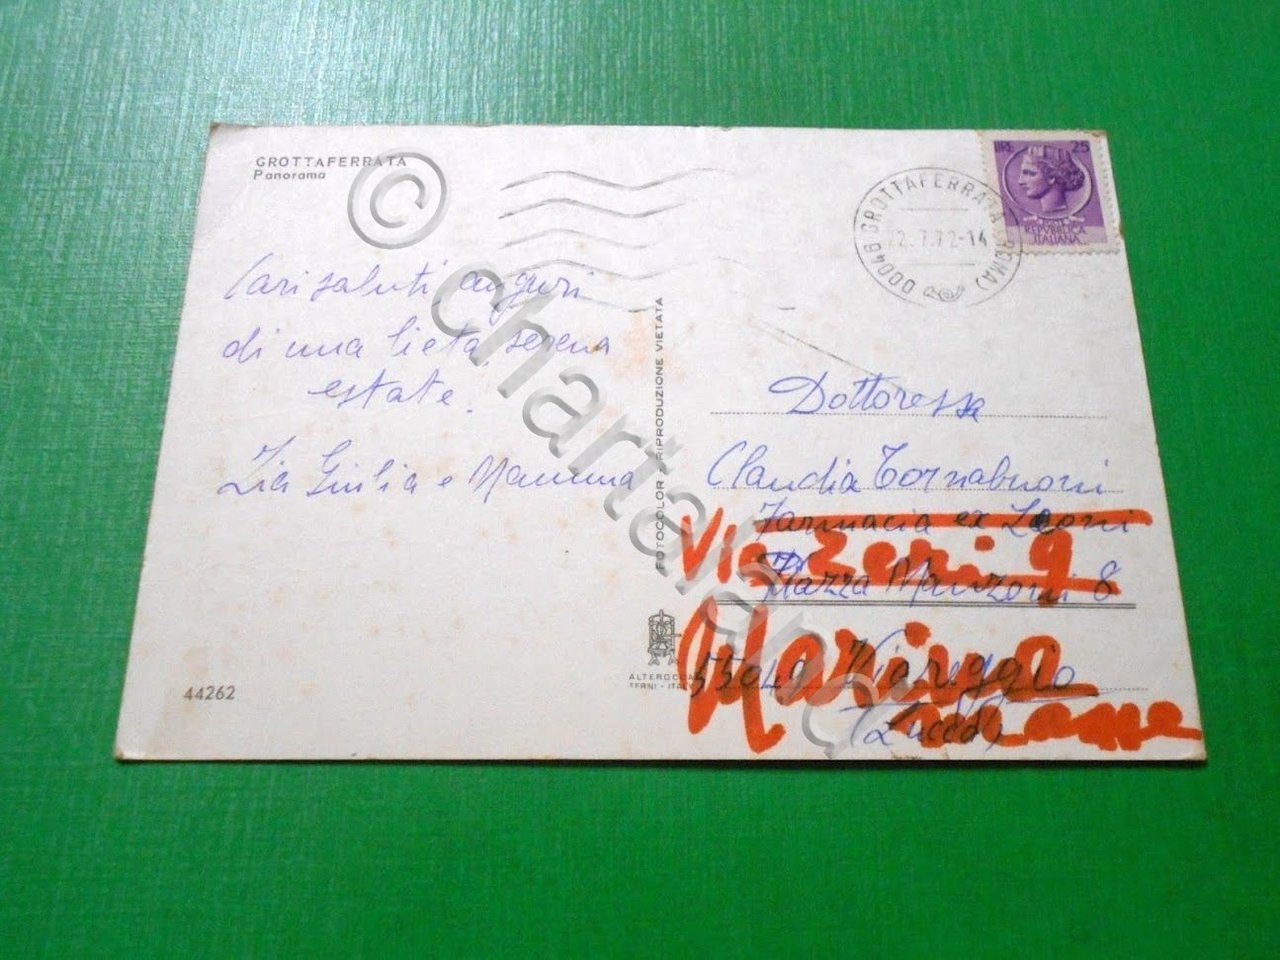 GROTTAFERRATA
Panorama
LIRE 25
REPVBBLICA
ITALIANA
00046 GROTTAFERRATA (ROMA)
22.7.72-14
Cari saluti, auguri
di una lieta, serena
estate.
Zia Giulia e Mamma
FOTOCOLOR - RIPRODUZIONE VIETATA
Dottoressa
Claudia Tornabuoni
Farmacia ex Leoni
Via 9
Piazza Manzoni 8
Marina
55049 Viareggio
(Lucca)
ALTEROCCA
TERNI - ITALY
44262
© chartaland